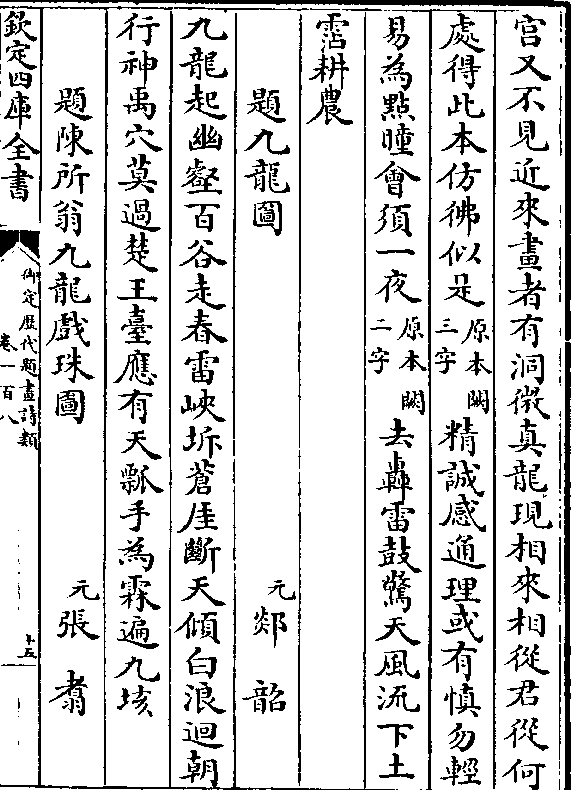 宫又不見近來畫者有洞微真龍現相來相從君從何
處得此本仿彿似是原本闕三字精誠感通理或有慎勿輕
易為點瞳會須一夜原本闕二字去轟雷鼓驚天風流下土
霑耕農
題九龍圖 元 鄭韶
九龍起幽壑百谷走春雷峽坼蒼厓斷天傾白浪迴朝
行神禹穴莫過楚王臺應有天瓢手為霖遍九垓
題陳所翁九龍戲珠圖 元 張翥
欽定四庫全書
御定歷代題畫詩類
卷一百八
十五